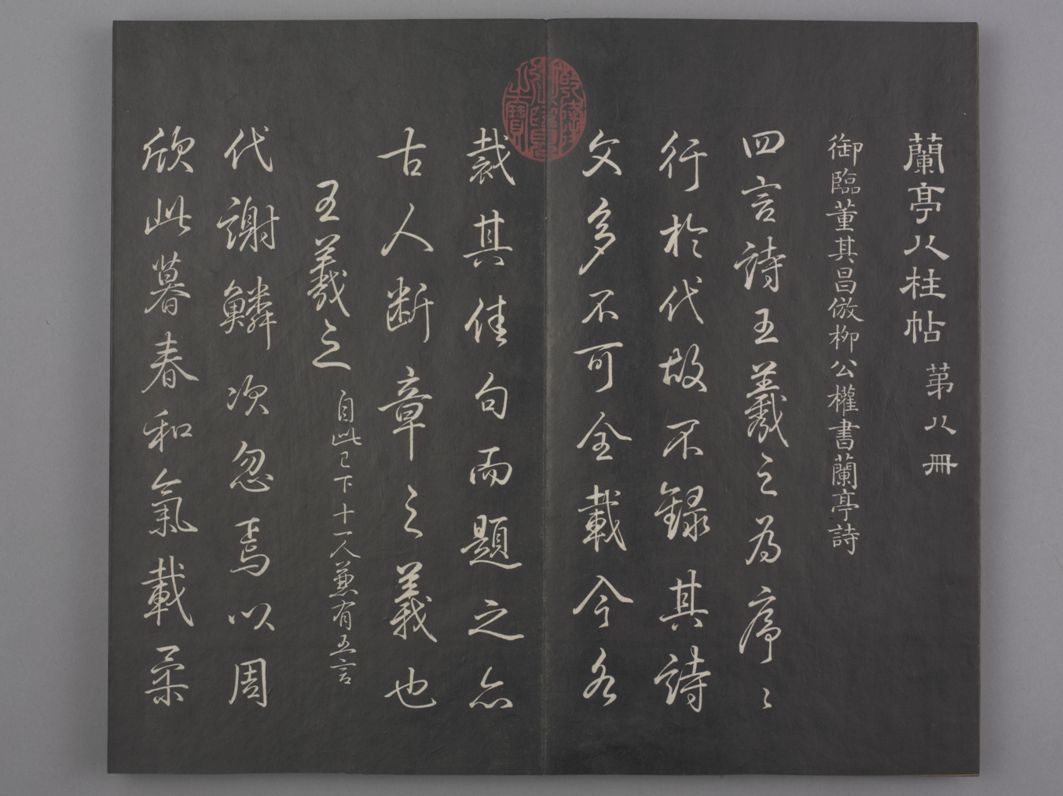 蘭亭八柱帖 第八冊
御臨董其昌倣柳公權書蘭亭詩
四言詩王羲之為序々
行於代故不錄其詩
文多不可全載今各
裁其佳句而題之亦
古人斷章之義也
王羲之 自此已下十一人兼有五言
代謝鱗次忽焉以周
欣此暮春和氣載柔